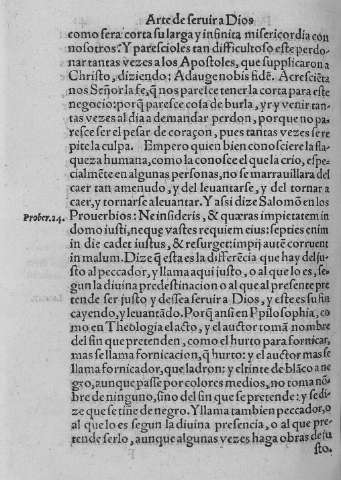 Arte de seruir a Dios
como sera corta su larga y infinita misericordia con
nosotros: Y parescioles tan difficultoso este perdo
nar tantas vezes a los Apostoles, que supplicaron a
Christo, diziendo: Adauge nobis fidē. Acresciēta
nos Señor la fe, q̃ nos paresce tener la corta para este
negocio: por q̃ paresce cosa de burla, yr y venir tan-
tas vezes al dia a demandar perdon, porque no pa-
resce ser el pesar de coraçon, pues tantas vezes se re
pite la culpa. Empero quien bien consciere la fla-
queza humana, como la conosce el que la crio, espe-
cialmēte en algunas personas, no se marauillara del
caer tan amenudo, y del leuantarse, y del tornar a
caer, y tornarse a leuantar. Y assi dize Salomō en los
Prouer. 24. Prouerbios: Ne insideris, & quæras impietatem in
domo iusti, neque vastes requiem eius: septies enim
in die cadet iustus, & resurget: impij autē corruent
in malum. Dize q̃ esta es la differēcia que hay del ju-
sto al peccador, y llama aqui justo, o al que lo es, se-
gun la diuina predestinacion o al que al presente pre
tende ser justo y dessea seruir a Dios, y este es su fin
cayendo, y leuantādo. Porq̃ ansi en Philosophia, co
mo en Theologia el acto, y el auctor tomā nombre
del fin que pretenden, como el hurto para fornicar,
mas se llama fornicacion, q̃ hurto: y el auctor mas se
llama fornicador, que ladron: y el tinte de blāco a ne
gro, aunque passe por colores medios, no toma nō-
bre de ninguno, sino del fin que se pretende: y se di-
ze que se tiñe de negro. Y llama tambien peccador, o
al que lo es segun la diuina presencia, o al que pre-
tende serlo, aunque algunas vezes haga obras de ju
sto.